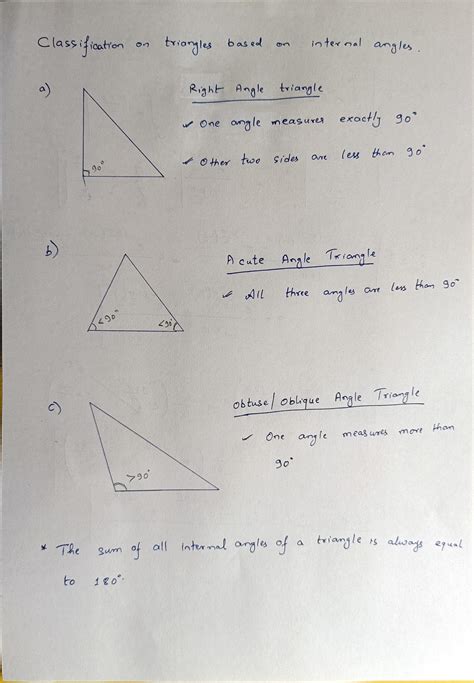 Classification on triangles based on internal angles.
a) Right Angle triangle
✓ One angle measures exactly 90°
✓ Other two sides are less than 90°
90°
b) Acute Angle Triangle
✓ All three angles are less than 90°
<90° <90°
c) Obtuse/Oblique Angle Triangle
✓ One angle measures more than
90°
>90°
* The sum of all internal angles of a triangle is always equal
to 180°.